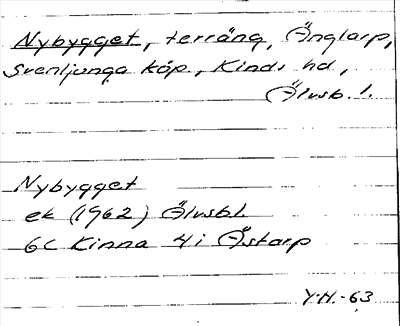 Nybygget, terräng, Änglarp,
Svenljunga köp., Kinds hd,
Älvsb. l.
Nybygget
ek (1962) Älvsb.l.
6C Kinna 4i Östarp
Y.H.-63